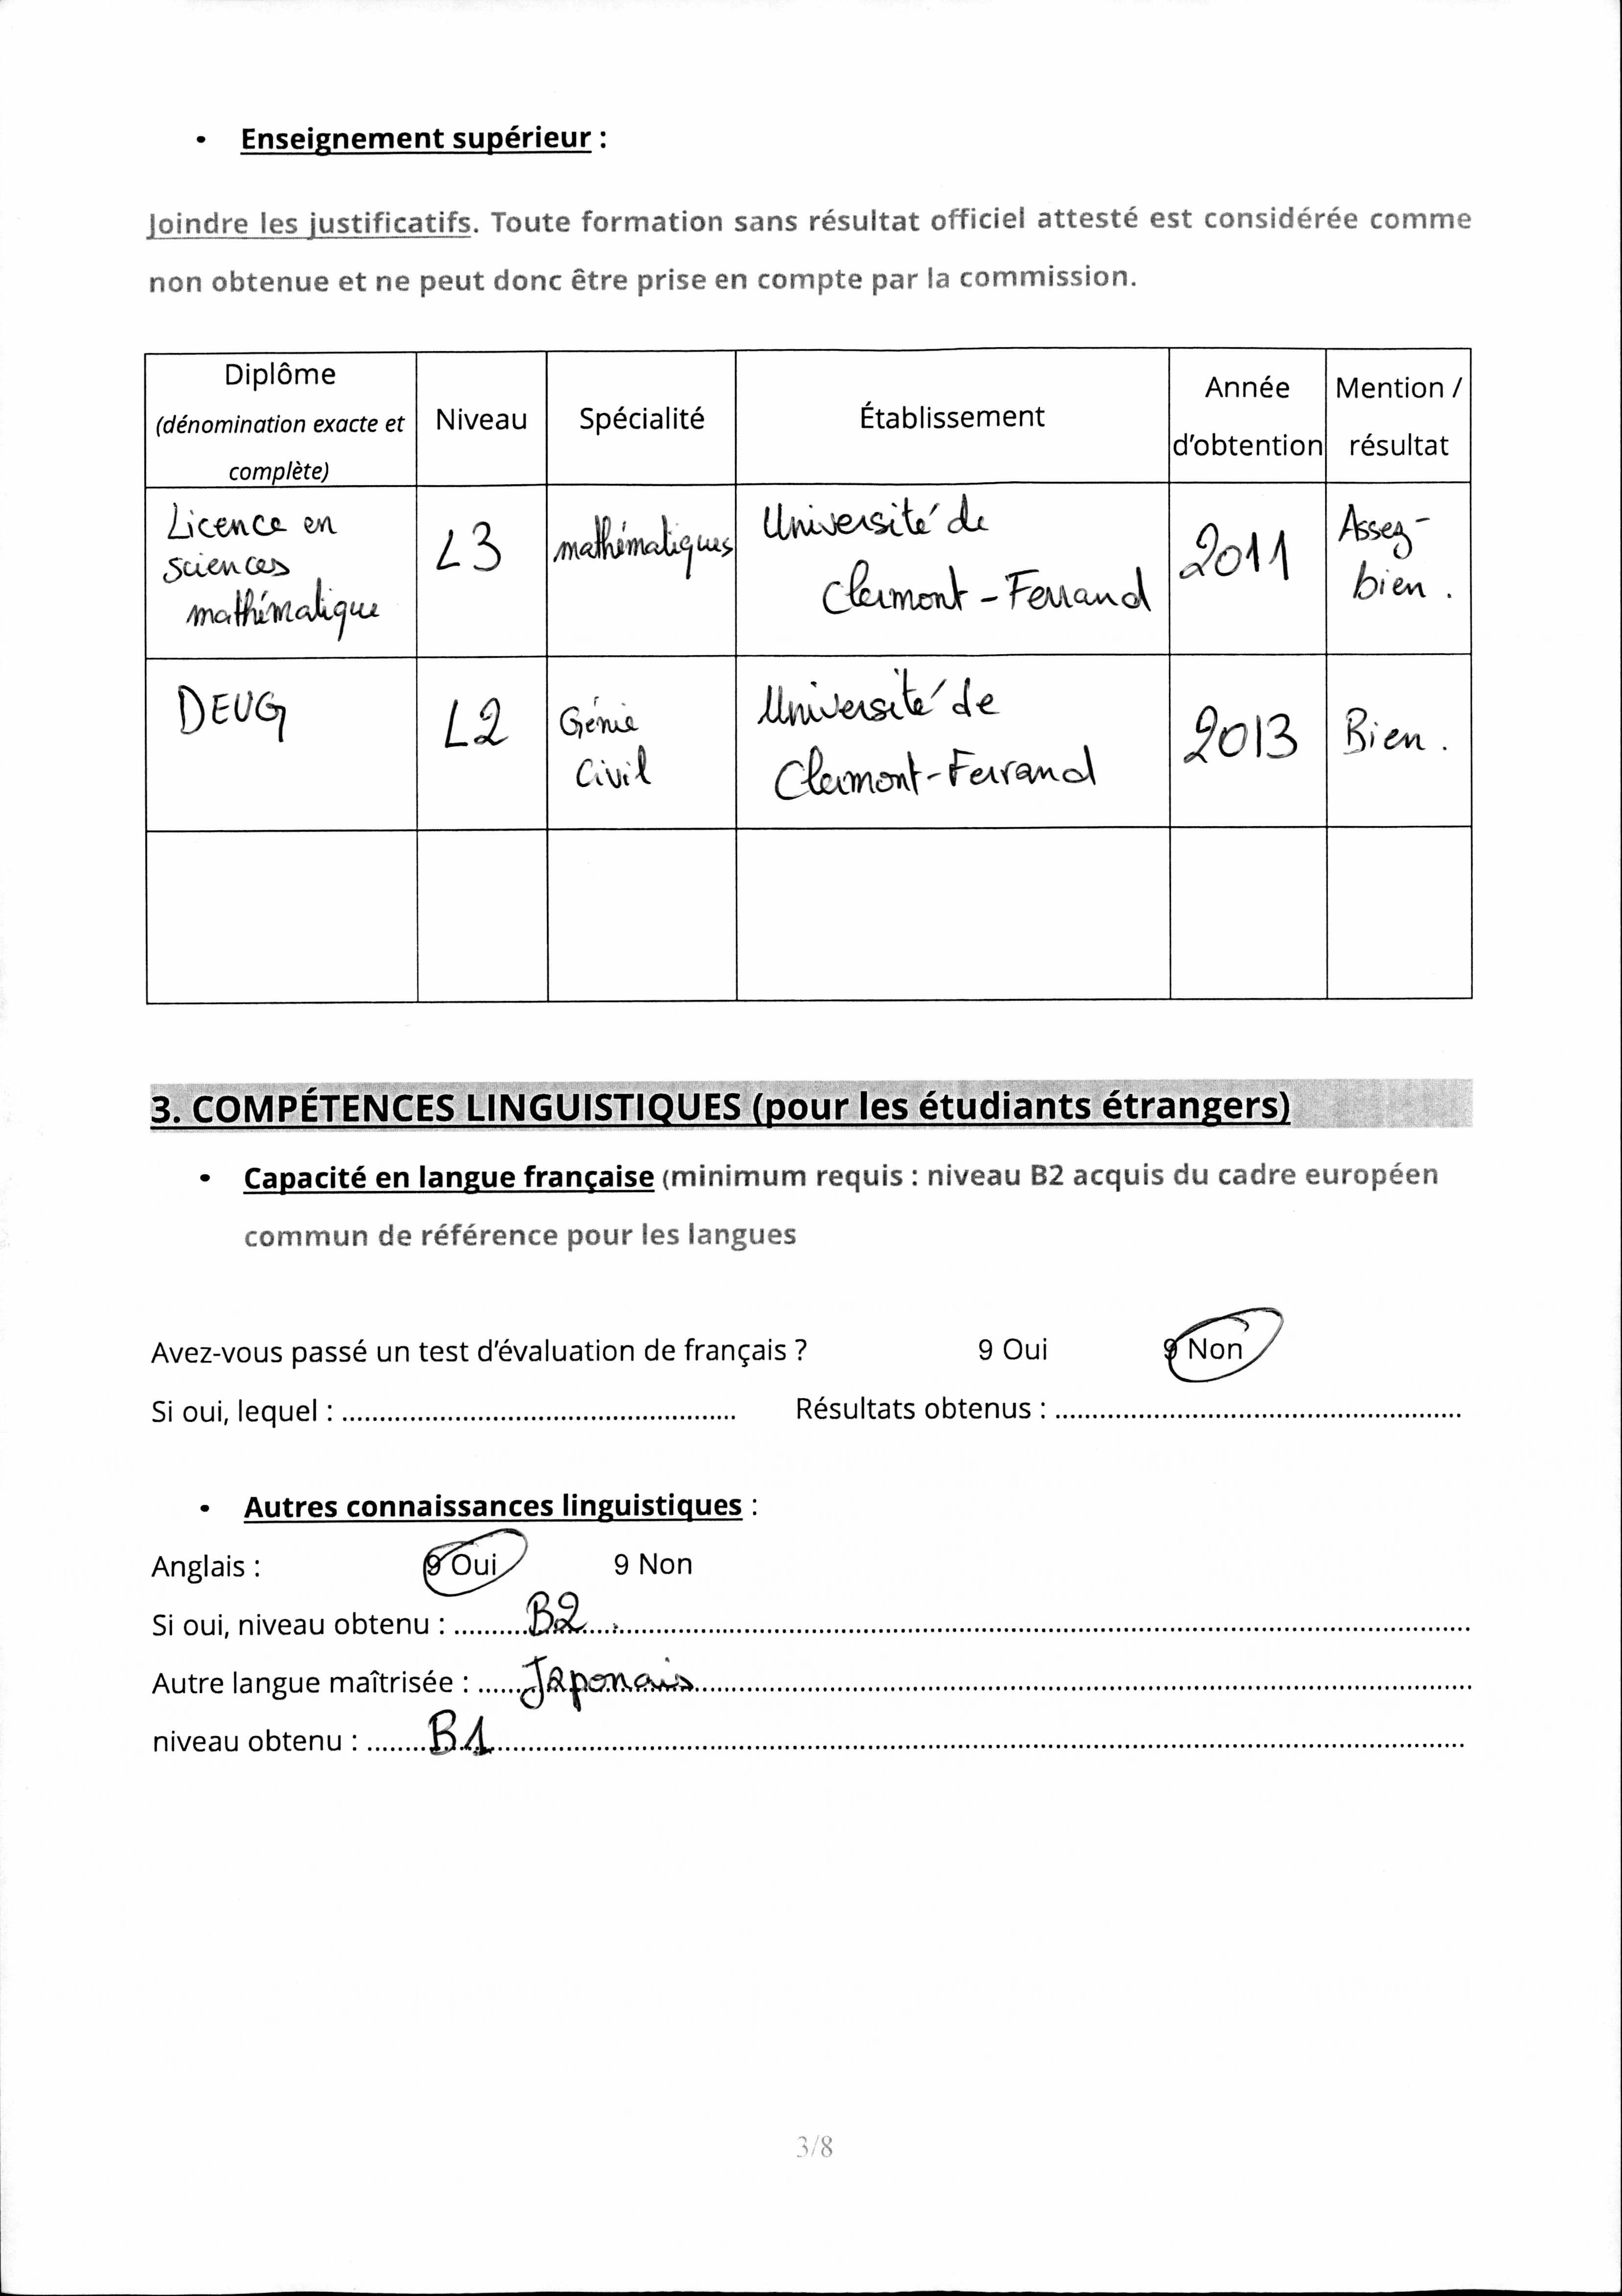 • Enseignement supérieur :
Joindre les justificatifs. Toute formation sans résultat officiel attesté est considérée comme
non obtenue et ne peut donc être prise en compte par la commission.
Diplôme
(dénomination exacte et
complète)
Niveau
Spécialité
Établissement
Année
d'obtention
Mention /
résultat
Licence en
sciences
mathématique
L3
mathématiques
Université de
Clermont-Ferrand
2011
Assez-
bien.
DEUG
L2
Génie
Civil
Université de
Clermont-Ferrand
2013
Bien.
3. COMPÉTENCES LINGUISTIQUES (pour les étudiants étrangers)
• Capacité en langue française (minimum requis : niveau B2 acquis du cadre européen
commun de référence pour les langues
Avez-vous passé un test d'évaluation de français ? 9 Oui 9 Non
Si oui, lequel : ........................................ Résultats obtenus : ........................................
• Autres connaissances linguistiques :
Anglais : 9 Oui 9 Non
Si oui, niveau obtenu : ..........B2..........
Autre langue maîtrisée : ......Japonais..........
niveau obtenu : ........B1..........
3/8